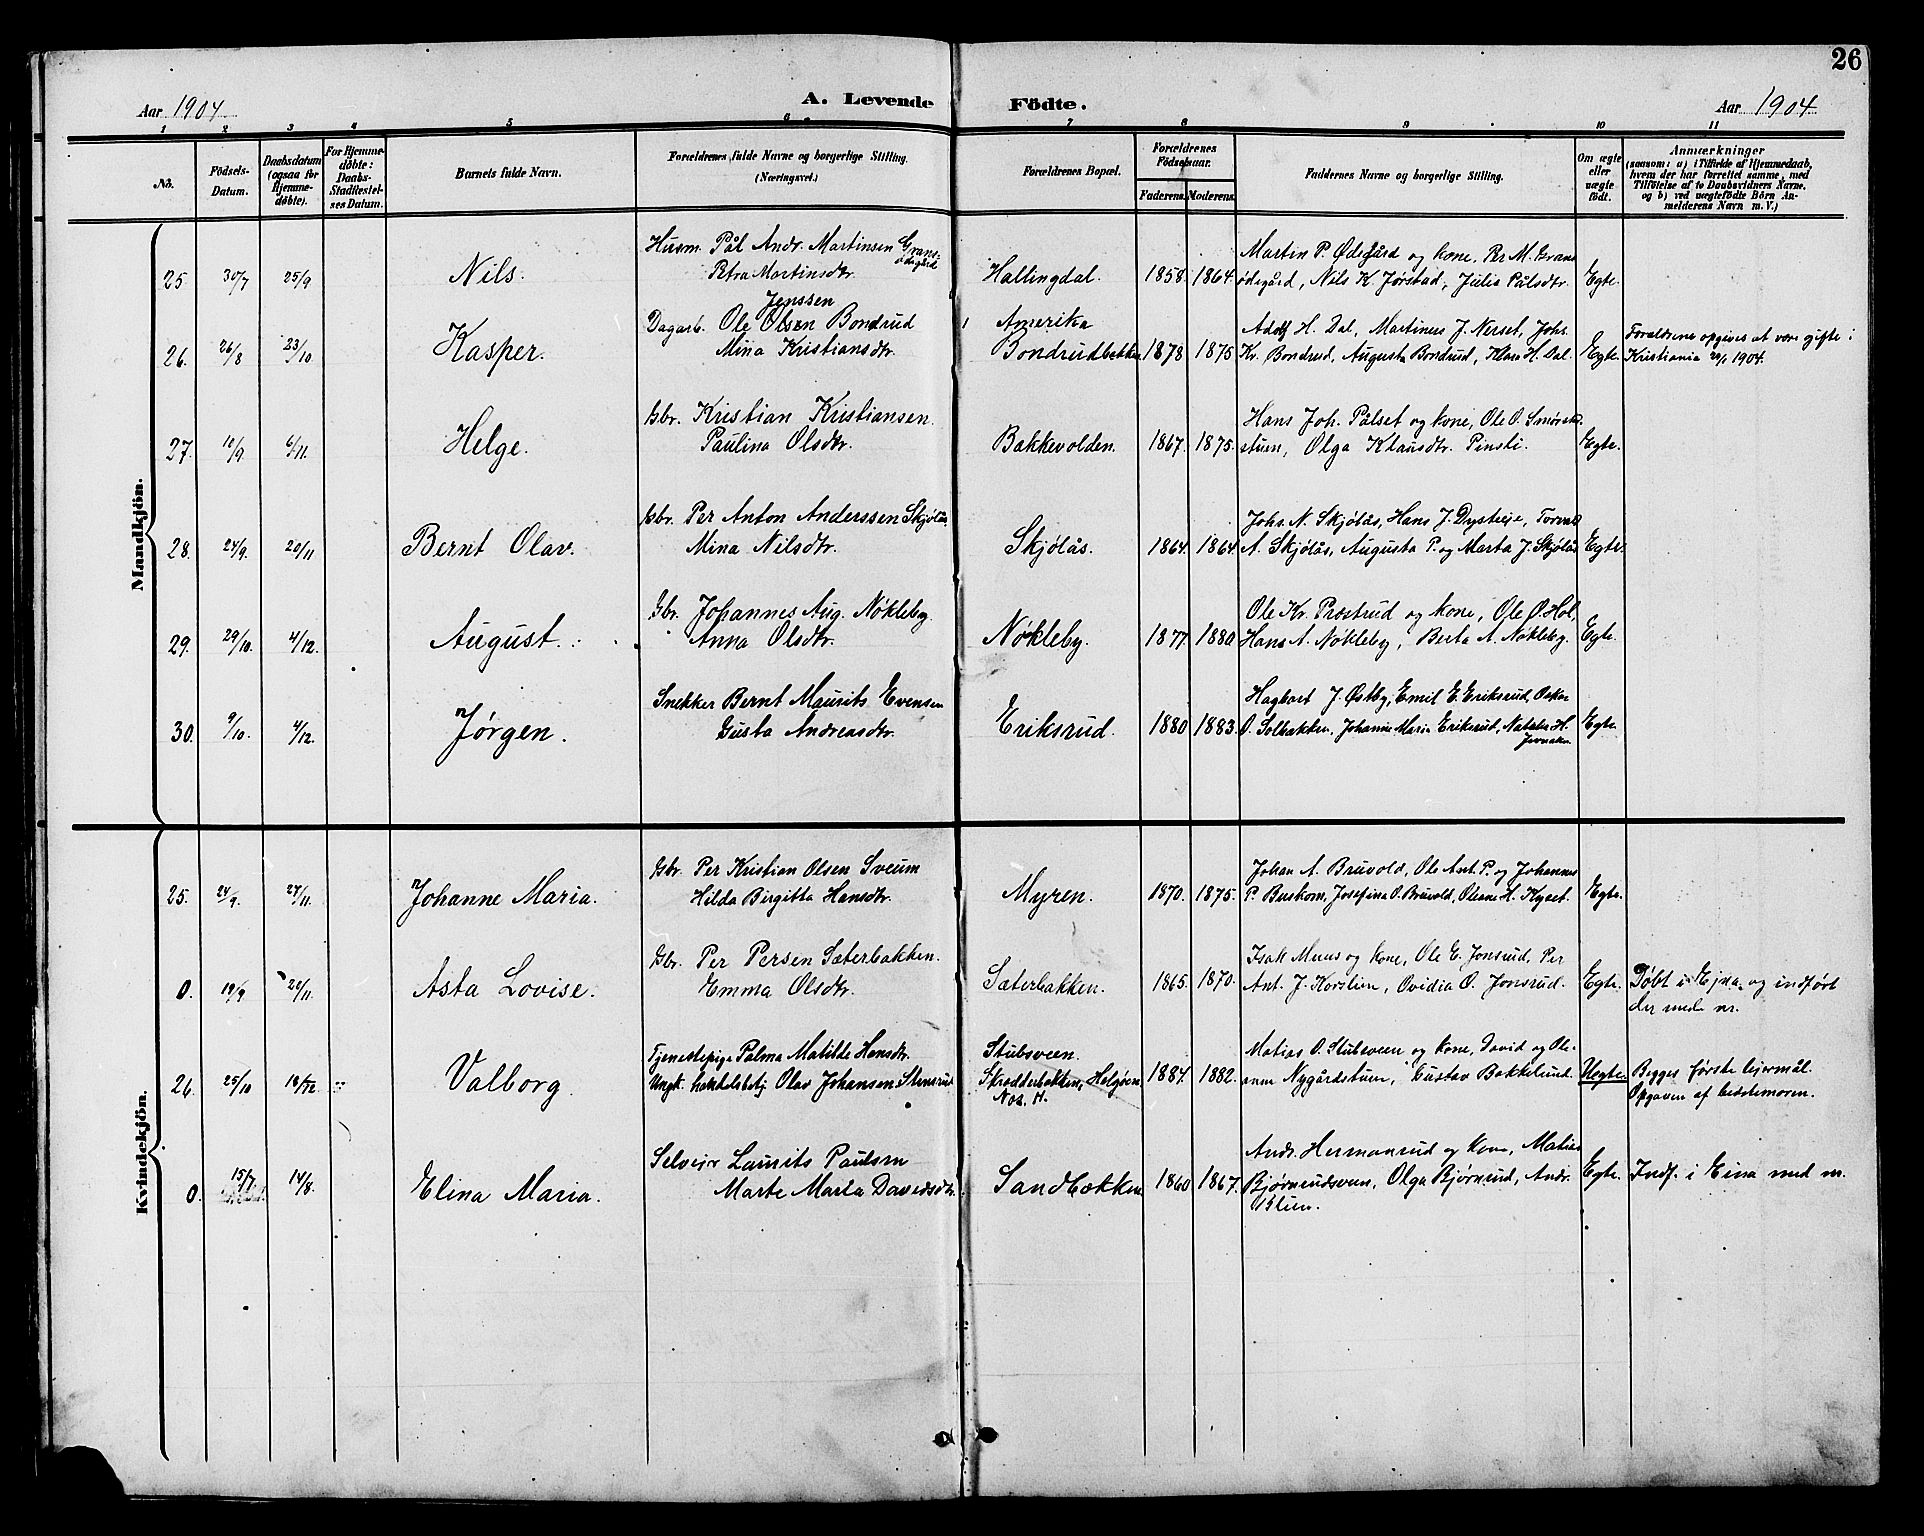 26
Aar 1904
A. Levende Födte.
Aar 1904
1 2 3 4 5 6 7 8 9 10 11
No.
Födsels-Datum.
Daabsdatum (ogsaa for Hjemme-döbte).
For Hjemme-döbte: Daabs-Stadfæstel-ses Datum.
Barnets fulde Navn.
Forældrenes fulde Navne og borgerlige Stilling.
(Næringsvei.)
Forældrenes Bopæl.
Forældrenes Födselsaar.
Faderens. Moderens.
Faddernes Navne og borgerlige Stilling.
Om ægte eller uægte födt.
Anmærkninger
(saasom: a) i Tilfælde af Hjemmedaab, hvem der har forrettet samme, med Tilföielse af to Daabsvidners Navne, og b) ved uægtefödte Börn Anmelderens Navn m. V.)
Mandkjön.
25. 30/7 25/9 Nils.
Husm. Pål Andr. Martinsen Grans-ødegård
Petra Martinsdtr.
Hallingdal. 1858. 1864.
Martin P. Ødegård og kone, Per M. Grans
ødegård, Nils K. Jørstad, Julia Pålsdtr. Egte.
26. 26/8 23/10 Kasper.
Jenssen
Dagarb. Ole Olsen Bondrud
Mina Kristiansdtr.
Amerika
Bondrudbakken 1878 1875
Adolf H. Dal, Martinus J. Nerset, Johs.
Kr. Bondrud, Augusta Bondrud, Klara H. Dal Egte.
Forældrene opgives at være gifte i
Kristiania 1904.
27. 10/9. 6/11. Helge.
Gbr. Kristian Kristiansen.
Paulina Olsdtr.
Bakkevolden. 1867. 1875.
Hans Joh. Pålset og kone, Ole O. Smørsk
stuen, Olga Klausdtr. Pinsli. Egte.
28. 24/9. 20/11 Bernt Olav.
Gbr. Per Anton Anderssen Skjølås.
Mina Nilsdtr.
Skjølås. 1864. 1864.
Johs. N. Skjølås, Hans J. Dysteeje, Torvald
A. Skjølås, Augusta P. og Marta J. Skjølås Egte.
29. 29/10. 4/12. August.
Gbr. Johannes Aug. Nøkleby.
Anna Olsdtr.
Nøkleby. 1877. 1880
Ole Kr. Præstrud og kone, Ole O. Hol,
Hans A. Nøkleby, Berta A. Nøkleby. Egte.
30. 9/10. 4/12. Jørgen.
Snekker Bernt Maurits Evensen
Gusta Andreasdtr.
Eriksrud. 1880 1883.
Hagbart J. Østby, Emil E. Eriksrud, Oskar
O. Solbakken, Johanne Maria Eriksrud, H. Egte.
Kvindekjön.
25. 24/9. 27/11. Johanne Maria.
Gbr. Per Kristian Olsen Sveum
Hilda Birgitta Hansdtr.
Myren. 1870. 1875.
Johan A. Bruvold, Ole Ant. P. og Johannes
P. Buskom, Josefina O. Bruvold, Oleane H. Kyset. Egte.
0. 19/9 20/11. Asta Lovise.
Gbr. Per Persen Sæterbakken.
Emma Olsdtr.
Sæterbakken. 1865. 1870.
Isak Muus og kone, Ole E. Jonsrud, Per
Ant. J. Korslien, Ovidia O. Jonsrud. Egte.
Døbt i Ejna og indført
der med nr.
26. 25/10 18/12. Valborg.
Tjenestepige Palma Matilde Hansdtr.
Ungk. Olav Johansen Stensrud
Stubsveen.
Skredderbakken, Helgøen,
Nes. H.
1884. 1882.
Matias O. Stubsveen og kone, David og Ole-
anna Nygårdstuen, Gustav Bakkelund. Uegte.
Begges første lejermål.
Opgaven af bedstemoren.
0. 15/7 14/8. Elina Maria.
Selvejer Laurits Paulsen
Marte Marta Davidsdtr.
Sandbakken 1860 1867.
Andr. Hermanrud og kone, Matias
Bjørnerudsveen, Olga Bjørnrud, Andr.
Blien. Egte.
Indf. i Eina med nr.